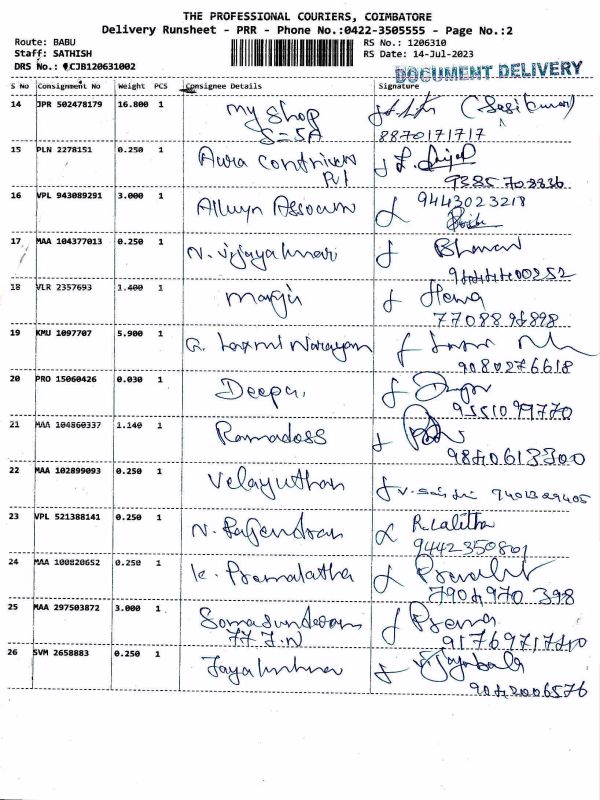 THE PROFESSIONAL COURIERS, COIMBATORE
Delivery Runsheet - PRR - Phone No.:0422-3505555 - Page No.:2
Route: BABU RS No.: 1206310
Staff: SATHISH RS Date: 14-Jul-2023
DRS No.: CJB120631002 DOCUMENT DELIVERY
S No Consignment No Weight PCS Consignee Details Signature
14 JPR 502478179 16.800 1 my shop
S=5A 8870171717
15 PLN 2278151 0.250 1 Aura
Pvt
16 VPL 943089291 3.000 1 Alluyn 9443023218
17 MAA 104377013 0.250 1 N. Vijayakumari
18 VLR 2357693 1.400 1 Hema
19 KMU 1097707 5.900 1 G. Laxmi Narayan
9080276618
20 PRO 15060426 0.030 1 Deepa
9551099770
21 MAA 104860337 1.140 1 Ramadoss
9840613300
22 MAA 102899093 0.250 1 Velayuthan
23 VPL 521388141 0.250 1 N. Rajendran R. Lalitha
9442350801
24 MAA 100820652 0.250 1 K. Premalatha
7904970398
25 MAA 297503872 3.000 1 Somasundaram Prema
77 J.N
26 SVM 2658883 0.250 1 Jayakrishna
9042006576